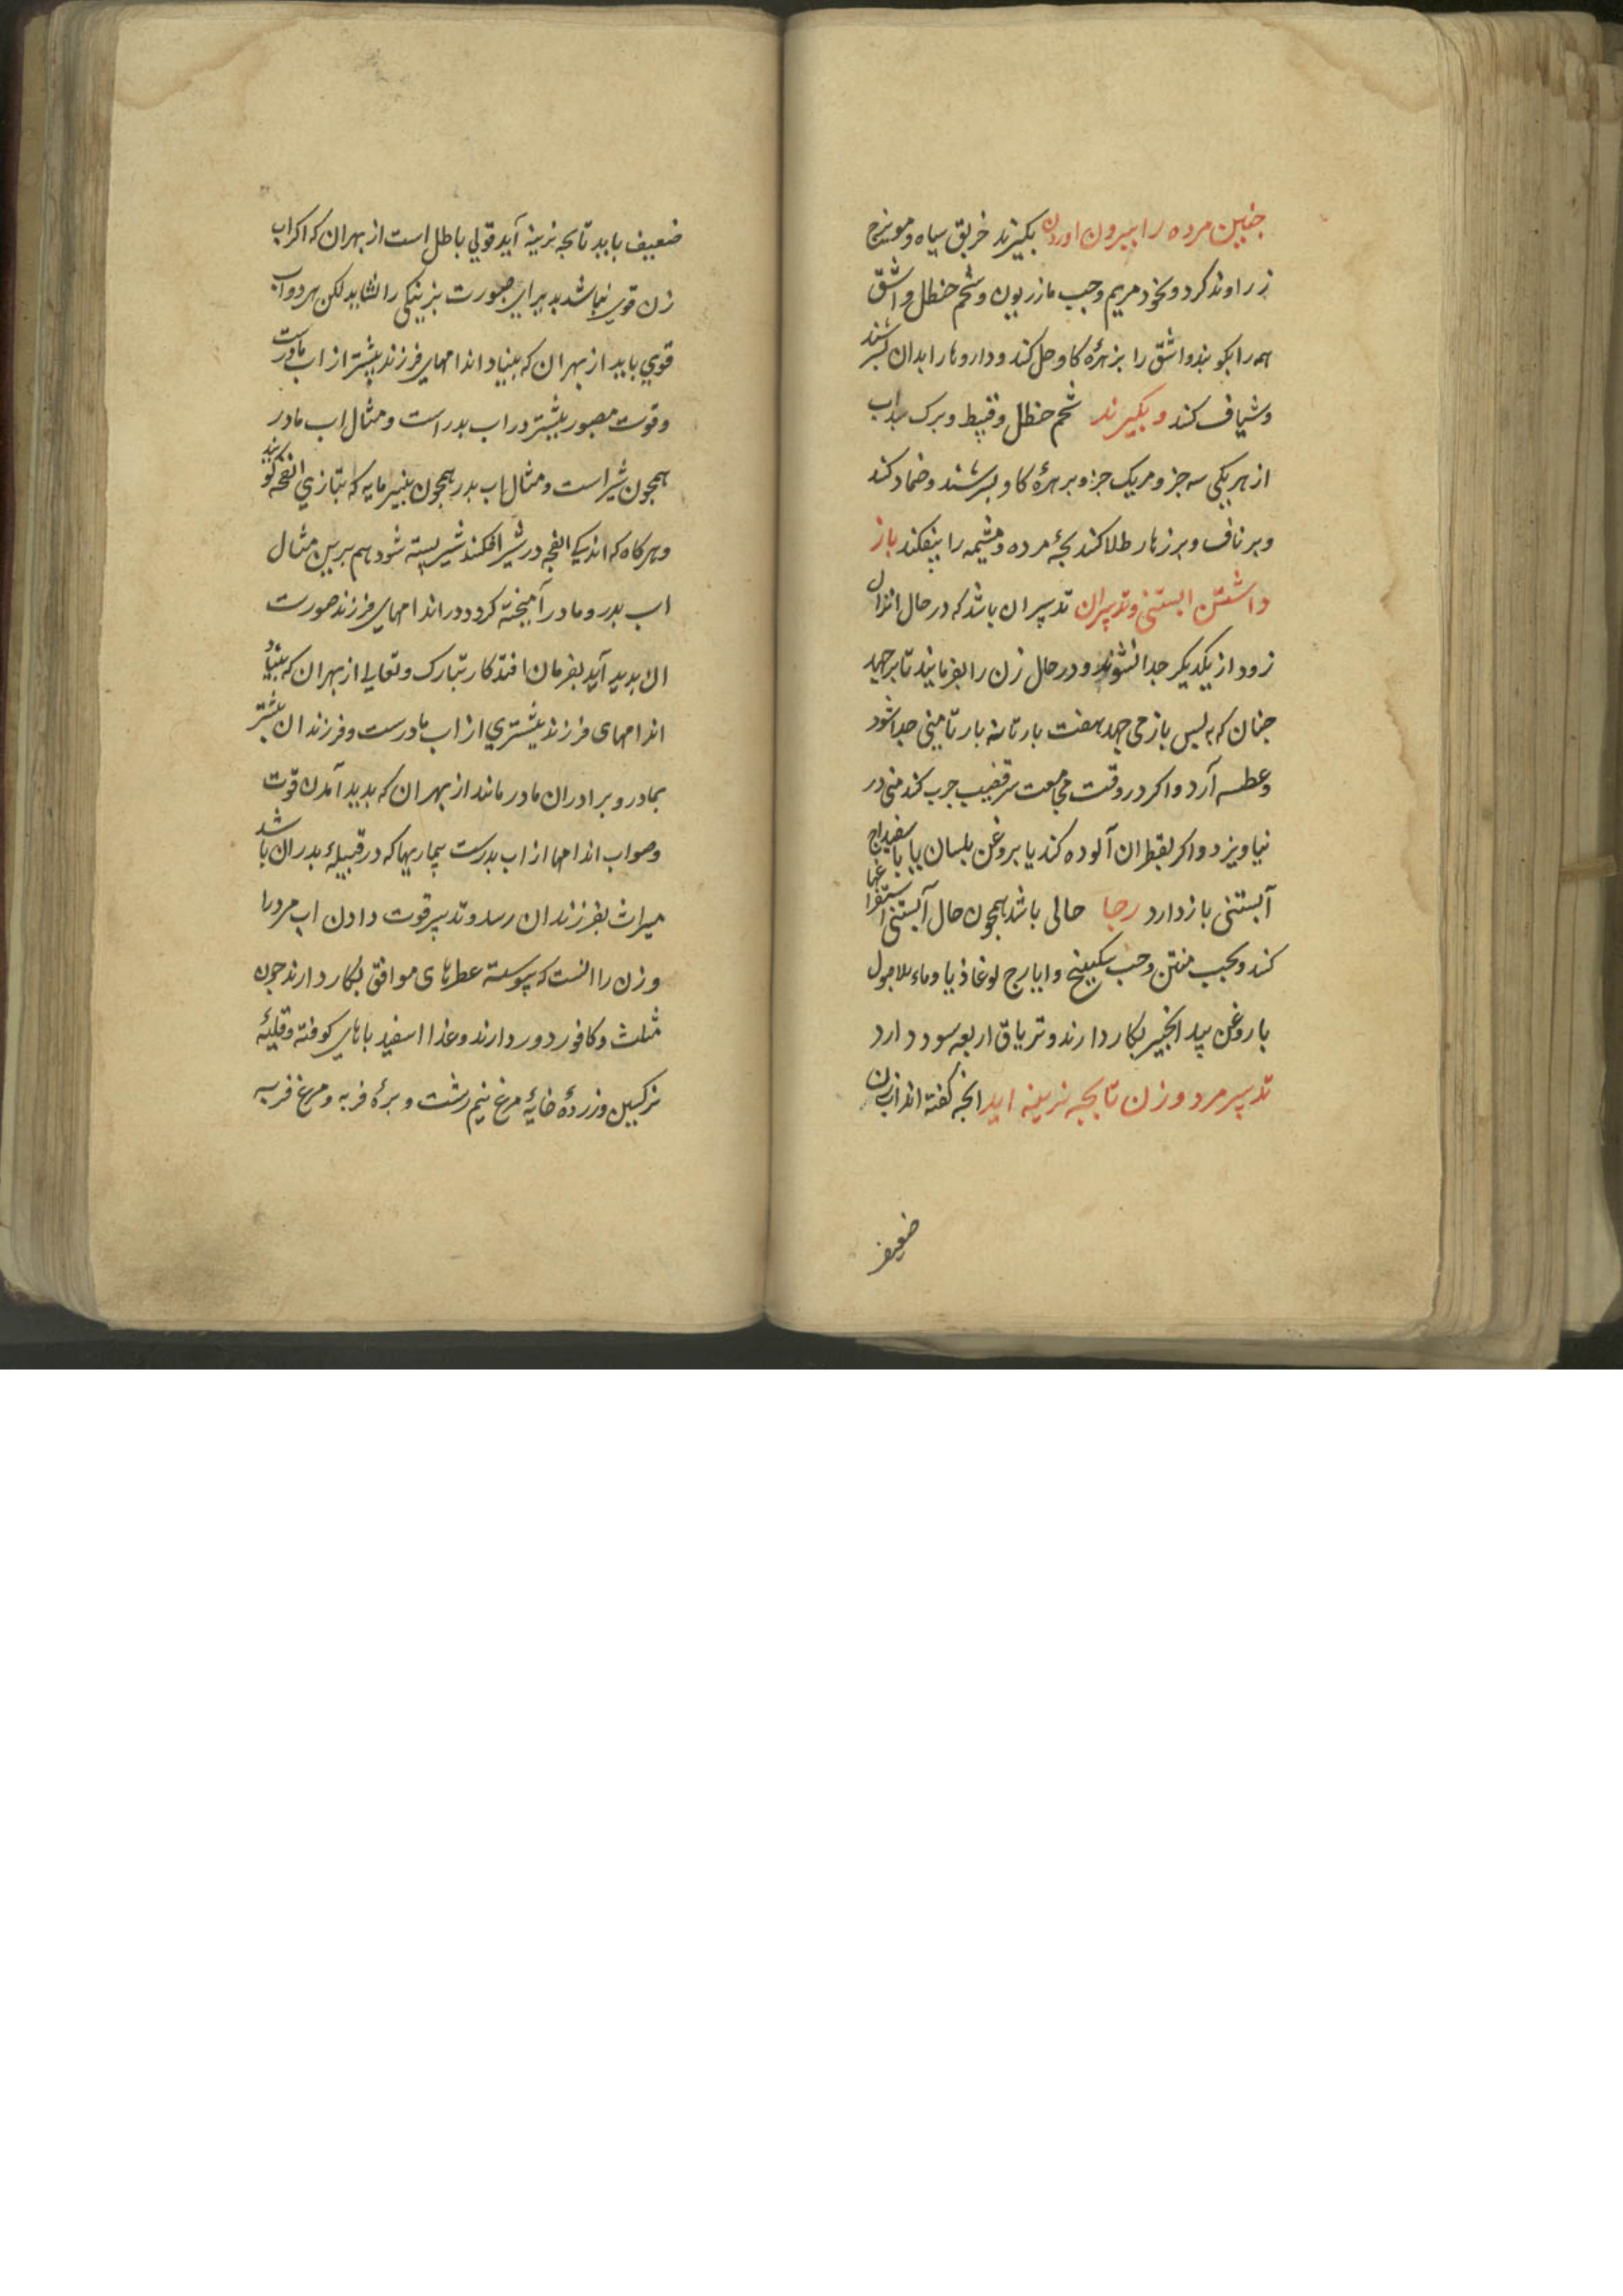 جنین مرده را بیرون اوردن بکیرند خربق سیاه و مویزج
زراوند کرد و بخود مریم و حب مازریون و شحم حنظل و اشق
همه را بکوبند و اشق را بزهرۀ کاو حل کند و داروها را بدان بسرشند
و شیاف کند و بکیرند شحم حنظل و قسط و برک سداب
از هریکی سه جزو مر یک جزو بزهرۀ کاو بسرشند و ضماد کند
و بر ناف و بر زهار طلا کند بجۀ مرده و مشیمه را بیفکند باز
داشتن ابستنی و تدبیر ان تدبیر ان باشد که در حال انزال
زود از یکدیکر جدا شوند و در حال زن را بفرمایند تا برجهد
جنان که به بس باز می جهد هفت بار تا نه بار تا منی جدا شود
و عطسه آرد و اکر در وقت مجامعت سر قضیب جرب کند منی در
نیاویزد و اکر بقطران آلوده کند یا بروغن بلسان یا باسفیداج
آبستنی باز دارد رجا حالی باشد همجون حال آبستنی استفراغها
کند و بحب منتن و حب سکبینج و ایارج لوغاذیا و ماء الاصول
با روغن بید انجیر بکار دارند و تریاق اربعه سود دارد
تدبیر مرد و زن تا بجه نرینه اید انجه کفته اند اب زن
ضعیف
ضعیف باید تا بجه نرینه آید قولی باطل است از بهر ان که اکر اب
زن قوی نباشد بدیرای صورت نرینکی را نشاید لکن هر دو اب
قوی باید از بهر ان که بنیاد اندامهای فرزند بیشتر از اب مادرست
و قوت مصور بیشتر در اب بدر است و مثال اب مادر
همجون شیر است و مثال اب بدر همجون بنیر مایه که بتازی انفحه کویند
و هر کاه که اندکی انفحه در شیر افکند شیر بسته شود هم برین مثال
اب بدر و مادر آمیخته کردد در اندامهای فرزند صورت
ان بدید آید بفرمان افتدکار تبارک و تعالی از بهر ان که بنیاد
اندامهای فرزند بیشتری از اب مادرست و فرزندان بیشتر
بمادر و برادران مادر مانند از بهر ان که بدید آمدن قوت
و صواب اندامها از اب بدرست بیماریها که در قبیلۀ بدران باشد
میراث بفرزندان رسد و تدبیر قوت دادن اب مرد را
و زن را انست که بیوسته عطرهای موافق بکار دارند جون
مثلث و کافور دور دارند و غذا اسفید باهای کوفته و قلیۀ
نرکسین و زردۀ خایۀ مرغ نیم برشت و برۀ فربه و مرغ فربه